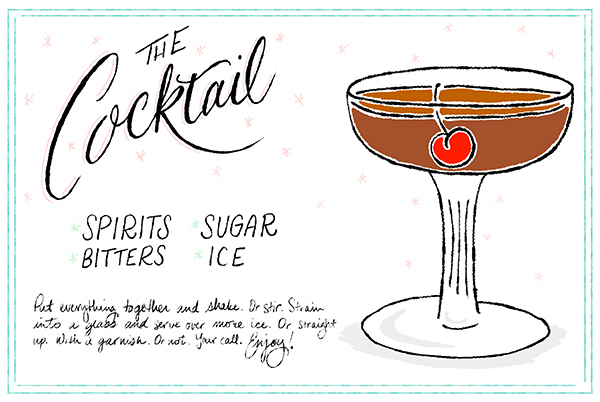 THE
Cocktail
SPIRITS SUGAR
BITTERS ICE
Put everything together and shake. Or stir. Strain
into a glass and serve over more ice. Or straight
up. With a garnish. Or not. Your call. Enjoy!